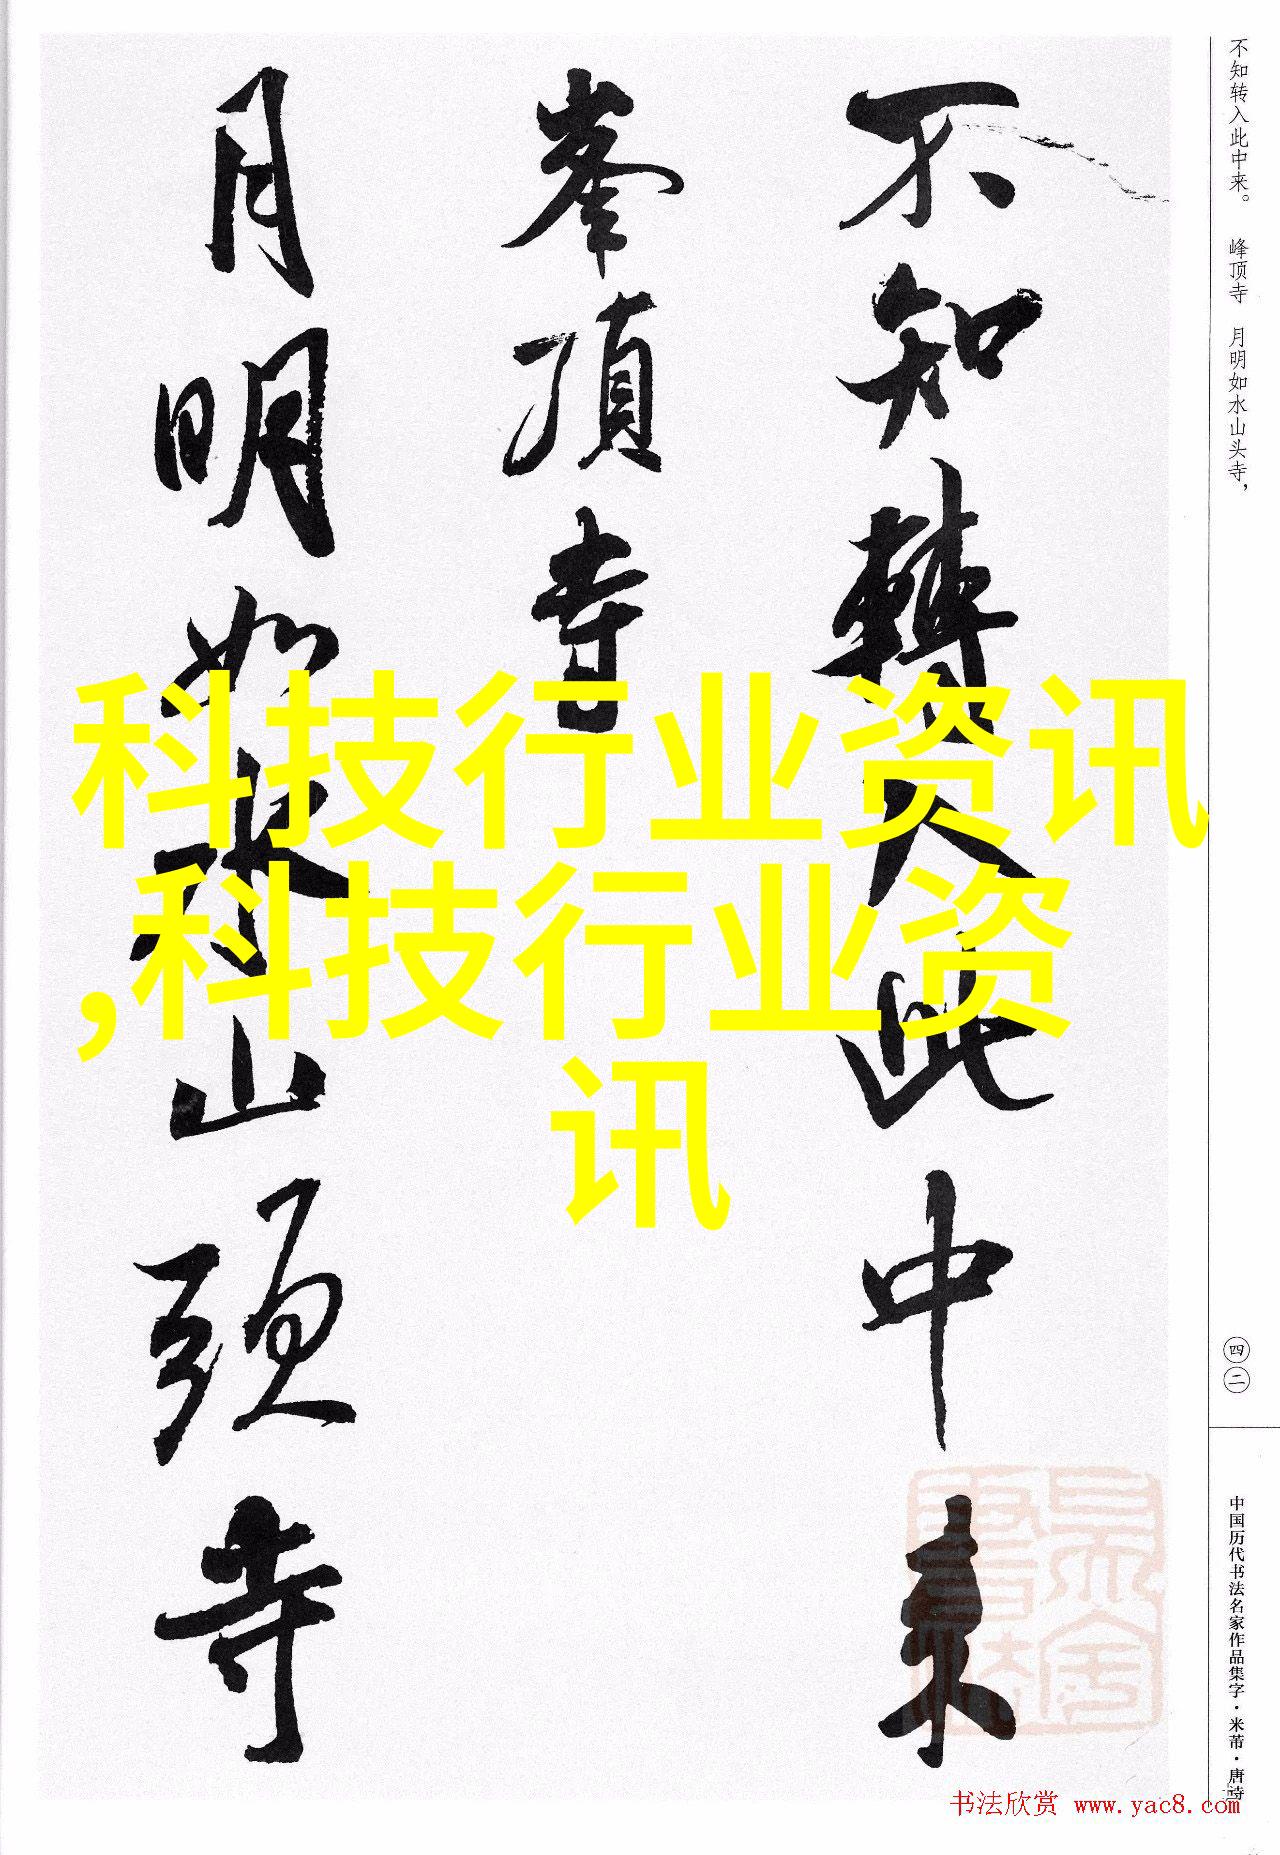 不知轉入此中来
峯頂寺
月明如水山頭寺
科技行业资讯
,科技行业资
讯
不知转入此中来。 峰顶寺 月明如水山头寺，
四二
中国历代书法名家作品集字·米芾·唐诗
书法欣赏 www.yac8.com